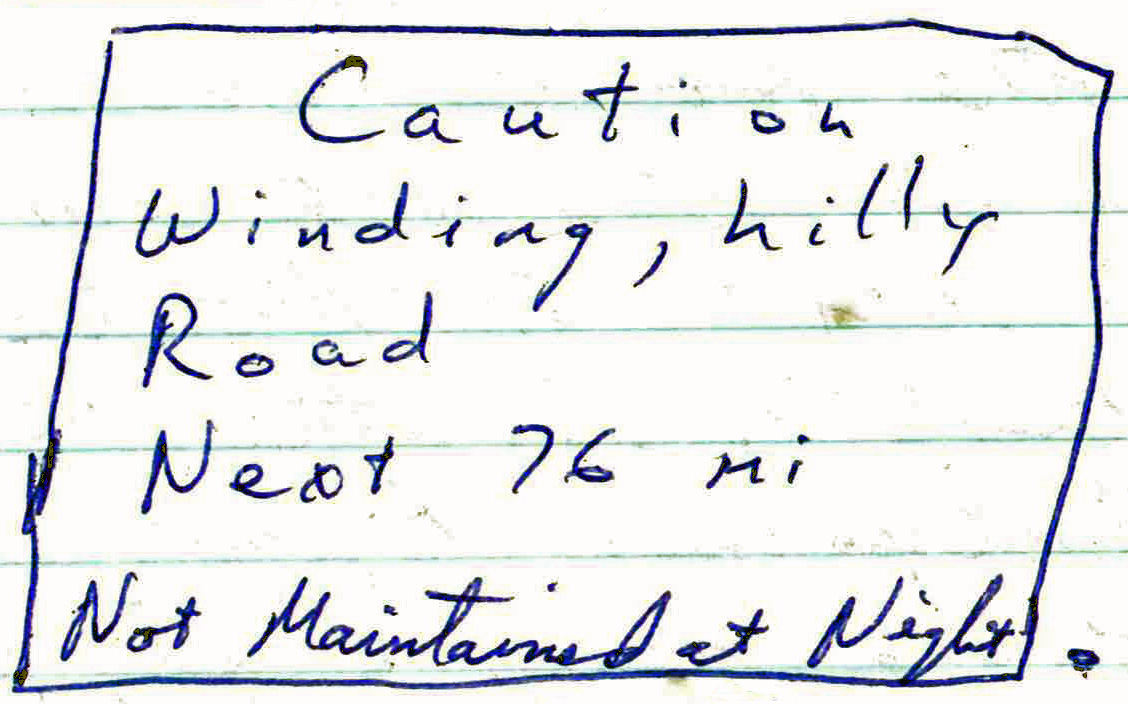 Caution
Winding, hilly
Road
Next 76 mi
Not Maintained at Night.